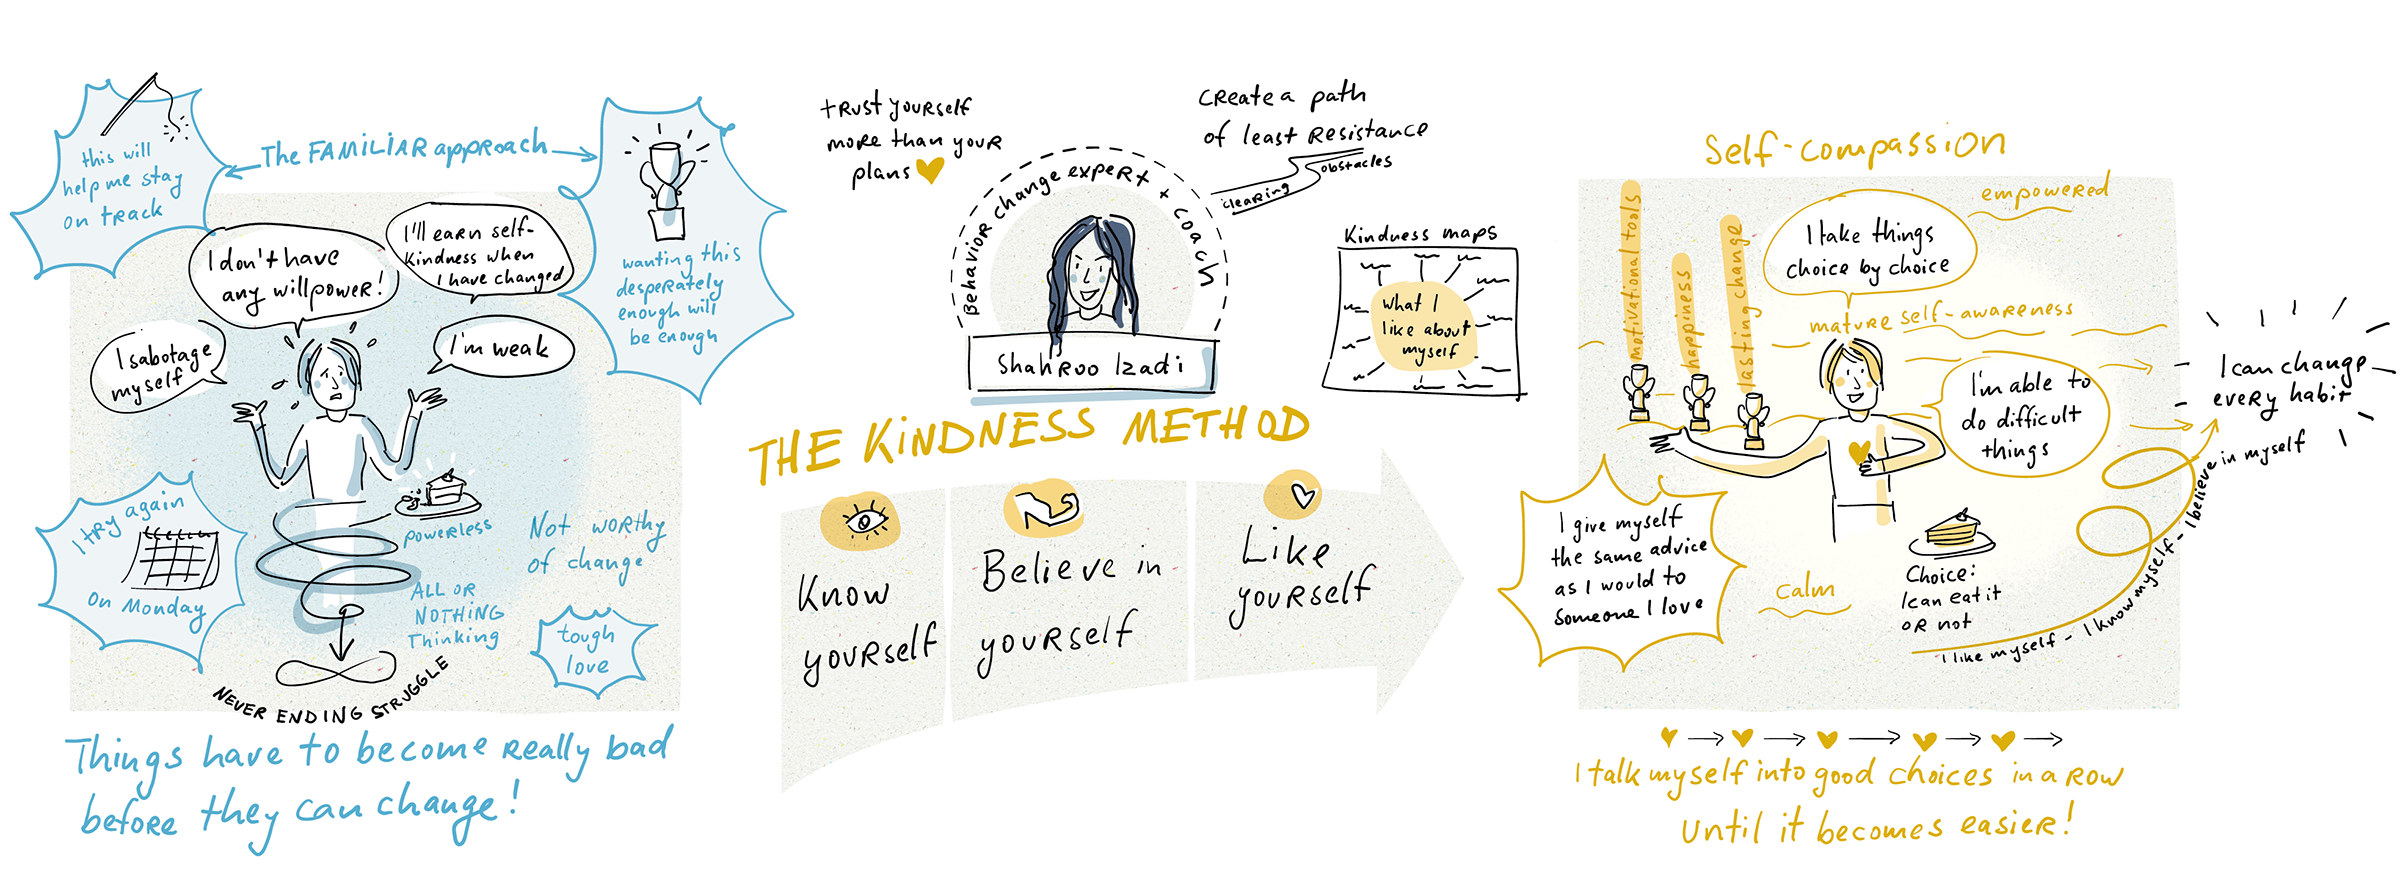 this will
help me stay
on track
The FAMILIAR approach
wanting this
desperately
enough will
be enough
I don't have
any willpower!
I'll earn self-
kindness when
I have changed
I sabotage
myself
I'm weak
I try again
on Monday
powerless
Not worthy
of change
ALL OR
NOTHING
Thinking
tough
love
NEVER ENDING STRUGGLE
Things have to become really bad
before they can change!
trust yourself
more than your
plans
Create a path
of least resistance
clearing
obstacles
Behavior change expert + coach
Shahroo Izadi
Kindness maps
what I
like about
myself
THE KINDNESS METHOD
Know
yourself
Believe in
yourself
Like
yourself
Self-compassion
motivational tools
happiness
lasting change
I take things
choice by choice
empowered
mature self-awareness
I'm able to
do difficult
things
I give myself
the same advice
as I would to
someone I love
calm
Choice:
I can eat it
or not
I like myself - I know myself - I believe in myself
I can change
every habit
I talk myself into good choices in a row
Until it becomes easier!